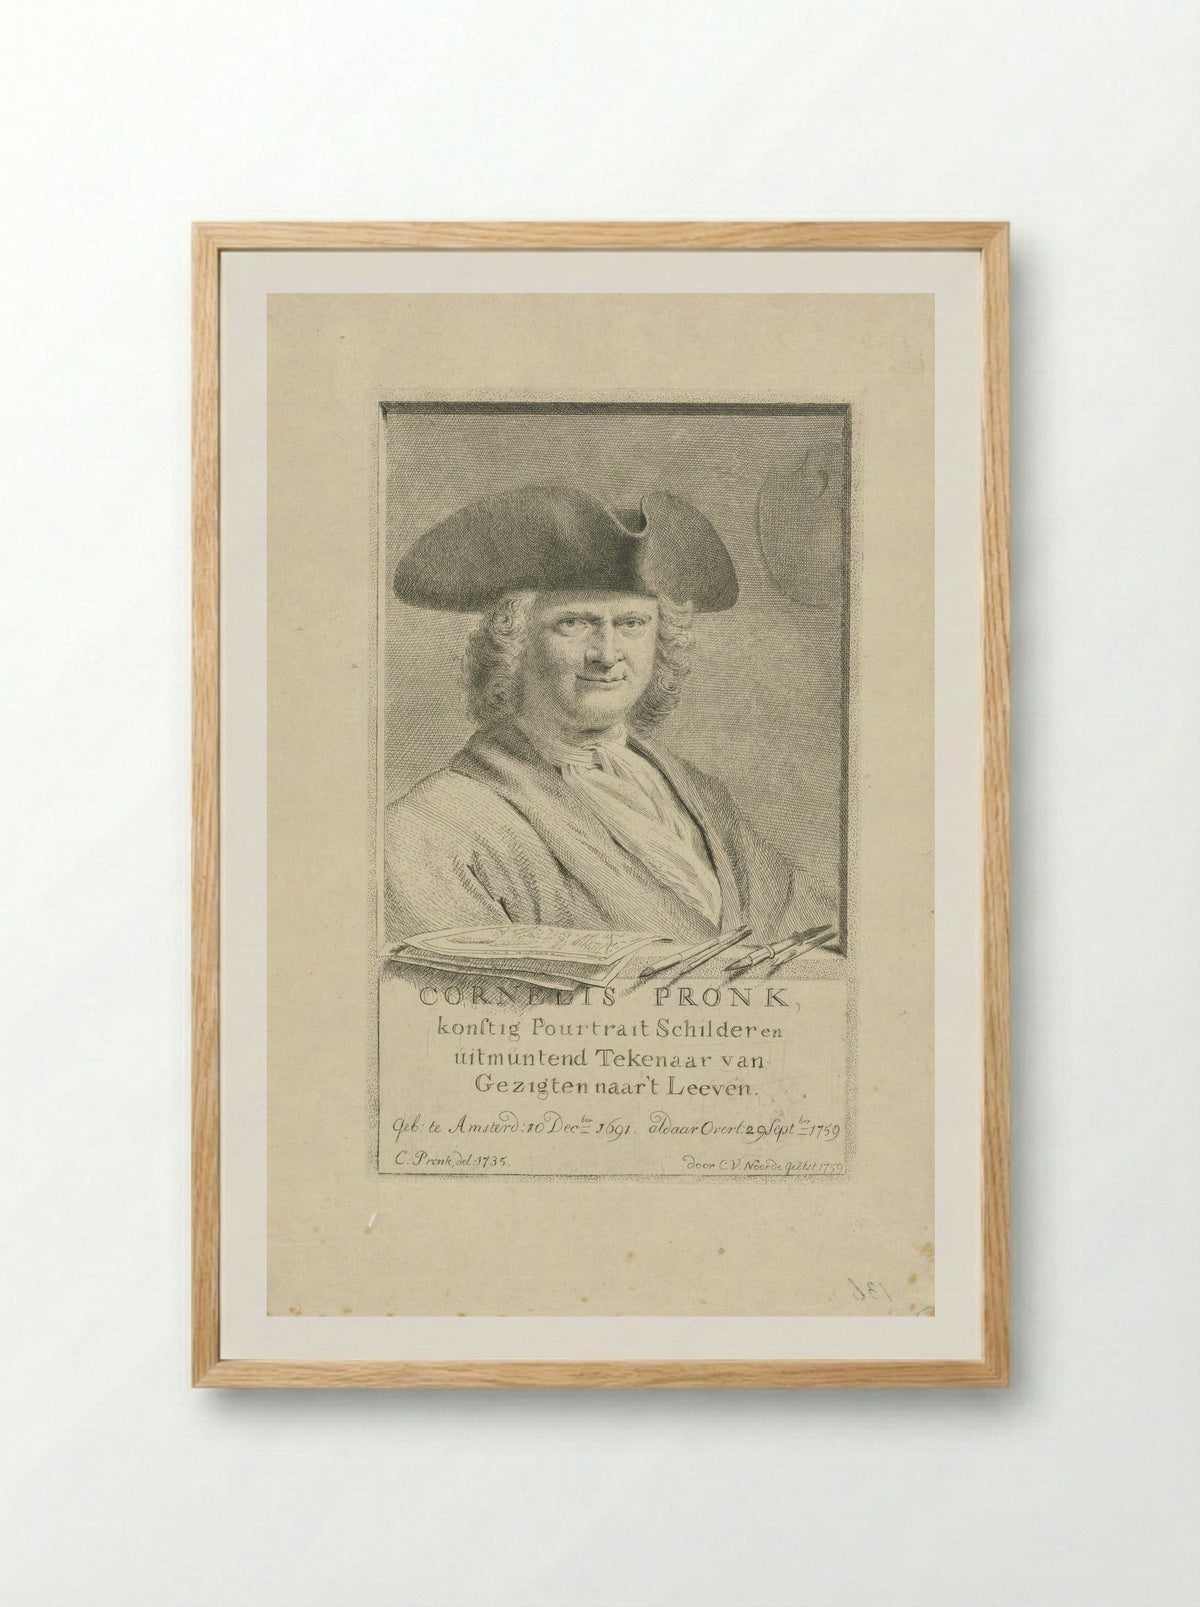 CORNELIS PRONK,
konſtig Pourtrait Schilder en
uitmuntend Tekenaar van
Gezigten naar't Leeven.
Geb: te Amsterd: 10 Decber 1691. aldaar Overl: 29 Septber 1759
C. Pronk, del: 1735. door C. V. Noorde geëtst 1759
136